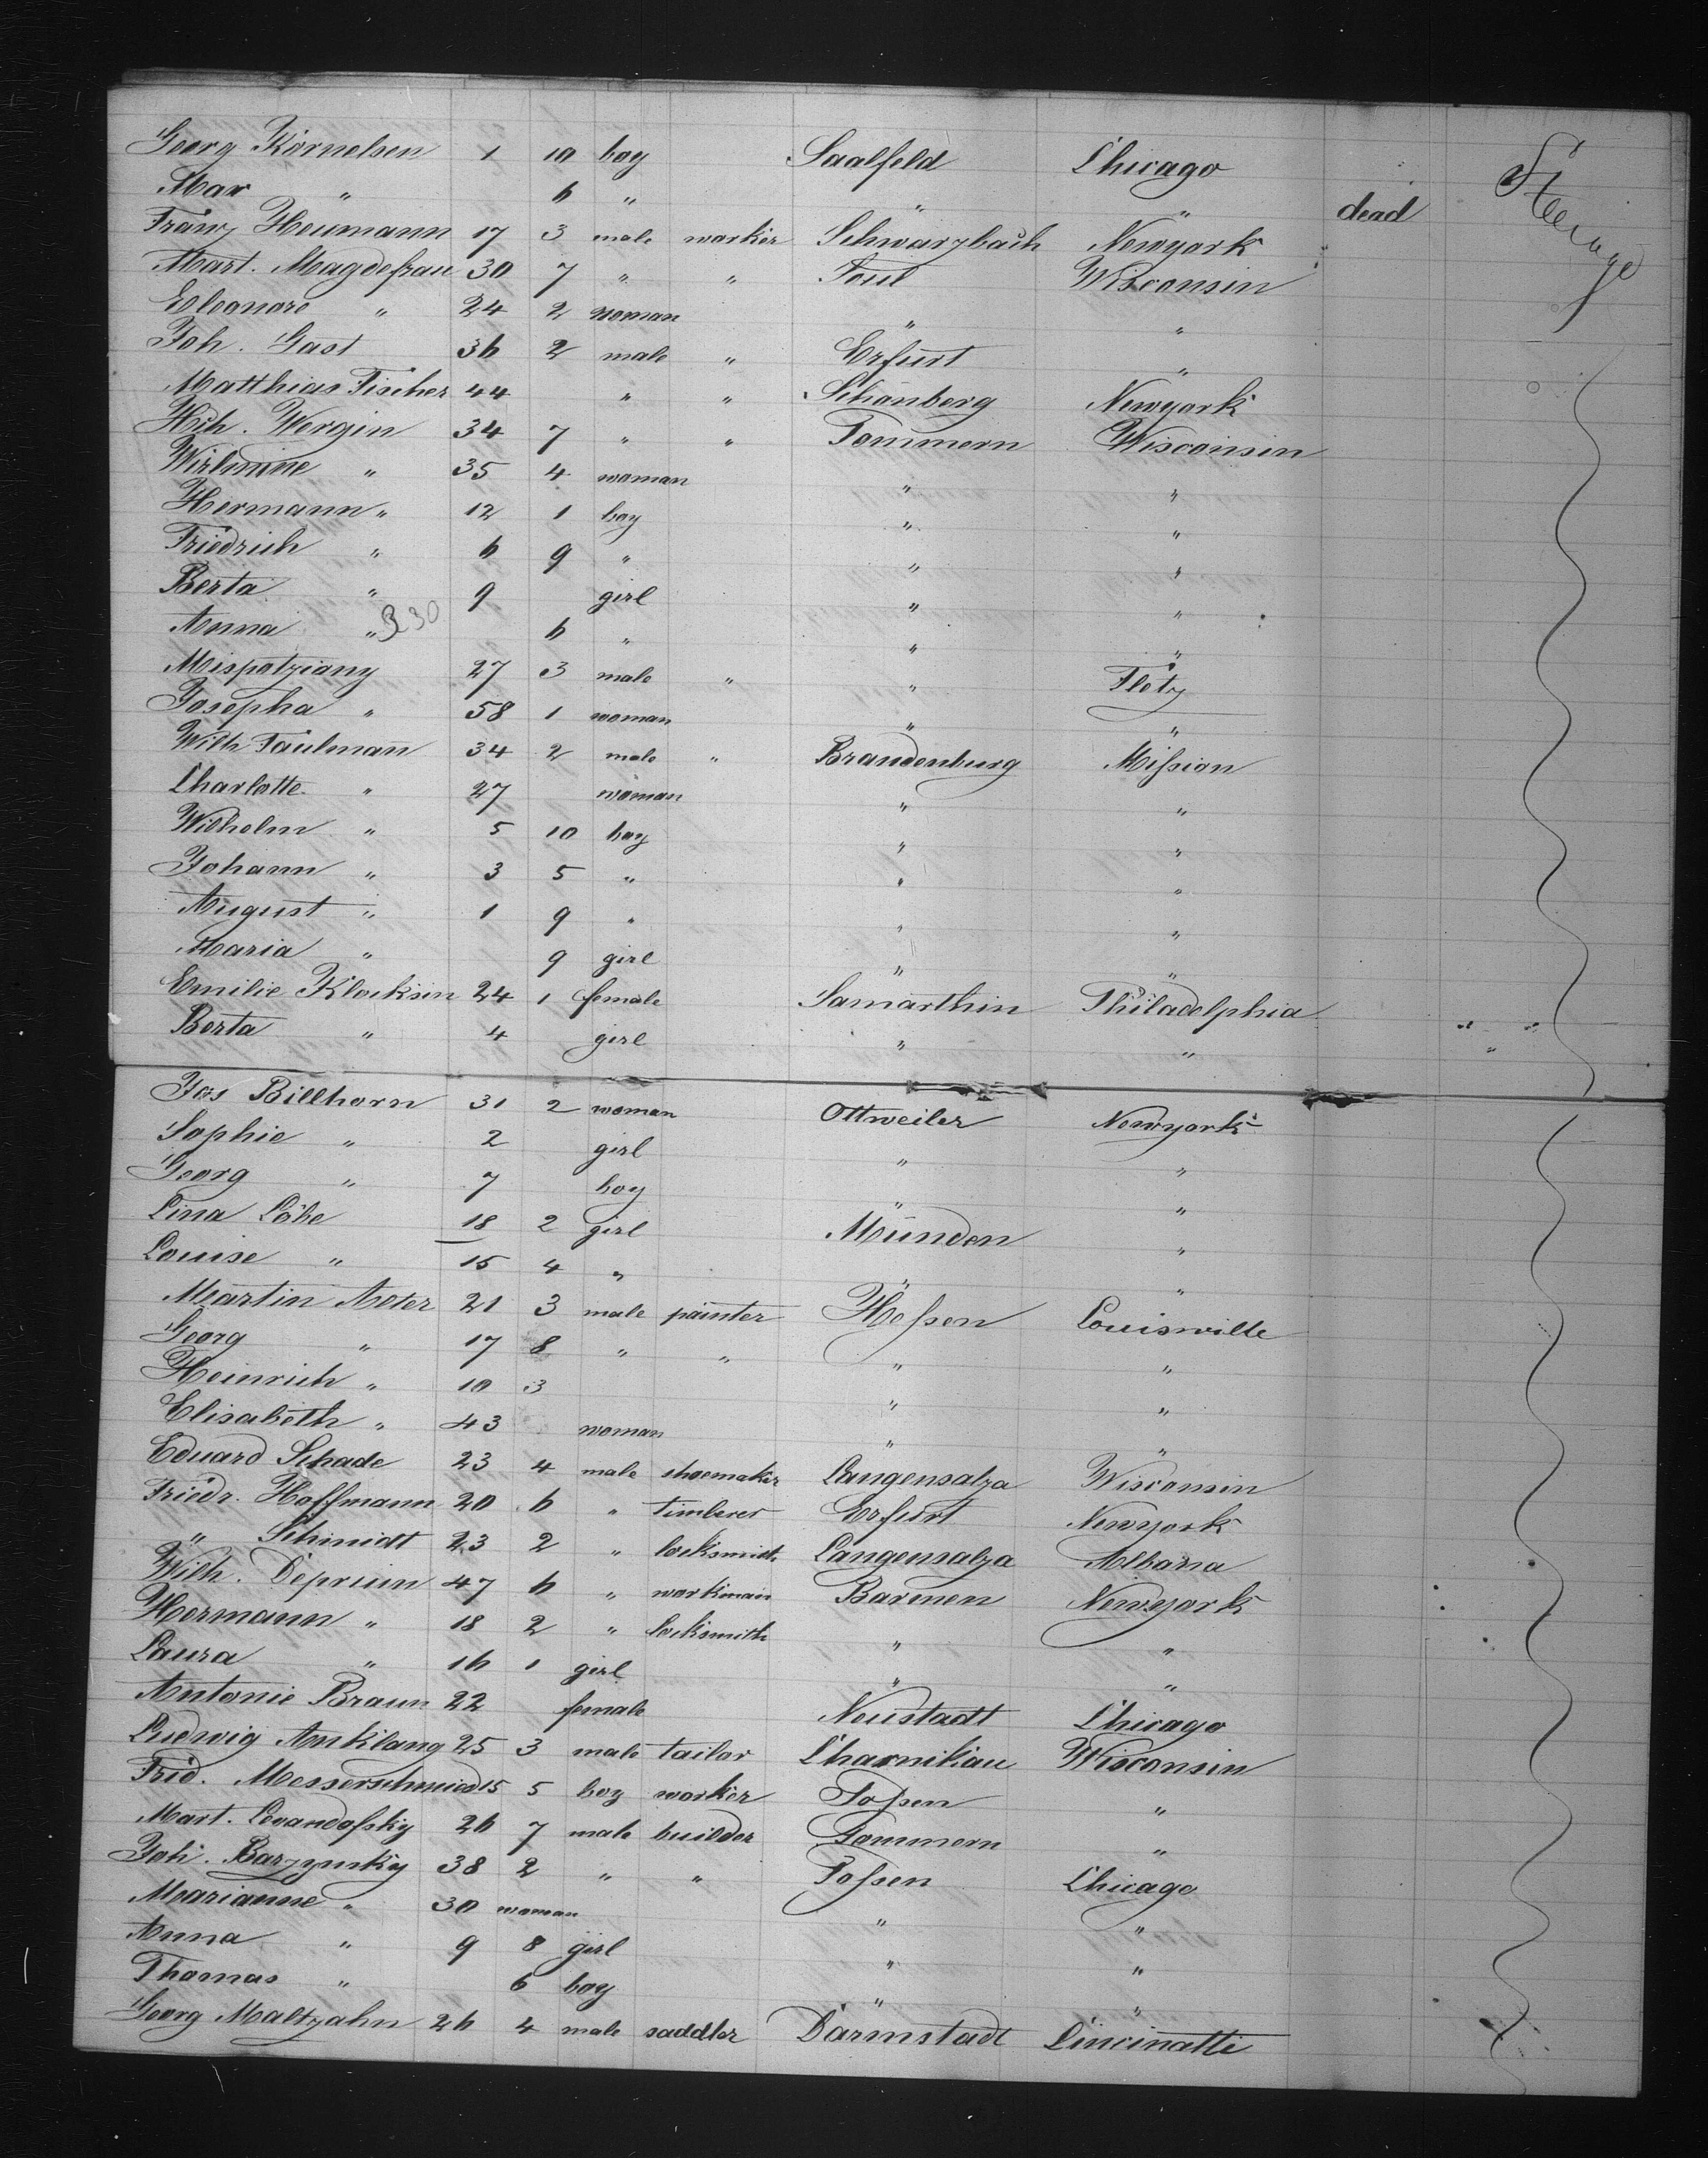 Georg Körnelsen 1 10 boy Saalfeld Chicago
Max " 6 " " " dead Steerage
Franz Heumann 17 3 male worker Schwarzbach Newyork
Mart. Magdefrau 30 7 " " Wisconsin
Eleonore " 24 2 woman " "
Joh. Gast 36 2 male " Erfurt "
Matthias Fischer 44 " " Schönberg Newyork
Hch. Wergin 34 7 " " Pommern Wisconsin
Wilhmine " 35 4 woman " "
Hermann " 12 1 boy " "
Friedrich " 6 9 " " "
Berta " 9 girl " "
Anna " 330 6 " " "
Mispotziany 27 3 male " " Floty
Josepha " 58 1 woman " "
Wilh Faulmann 34 2 male " Brandenburg Mission
Charlotte " 27 woman " "
Wilhelm " 5 10 boy " "
Johann " 3 5 " " "
August " 1 9 " " "
Maria " 9 girl " "
Emilie Klocksin 24 1 female Samarthin Philadelphia
Berta " 4 girl " "
Jos Billhorn 31 2 woman Ottweiler Newyork
Sophie " 2 girl " "
Georg " 7 boy " "
Lina Löhe 18 2 girl Münden "
Louise " 15 4 " " "
Martin Aoter 21 3 male painter Hessen Louisville
Georg " 17 8 " " " "
Heinrich " 10 3 " "
Elisabeth " 43 woman " "
Eduard Schade 23 4 male shoemaker Langensalza Wisconsin
Friedr. Hoffmann 20 6 " timberer Erfurt Newyork
" Schmidt 23 2 " locksmith Langensalza Albana
Wilh. Deprium 47 6 " workman Barmen Newyork
Hermann " 18 2 " locksmith " "
Laura " 16 1 girl " "
Antonie Braun 22 female Neustadt Chicago
Ludwig Anklang 25 3 male tailor Charnikau Wisconsin
Frid. Messerschmied 15 5 boy worker Possen "
Mart. Levandofsky 26 7 male builder Pommern "
Joh. Barzynsky 38 2 " " Possen Chicago
Marianne " 30 woman " "
Anna " 9 8 girl " "
Thomas " 6 boy " "
Georg Maltzahn 26 4 male saddler Darmstadt Cincinatti